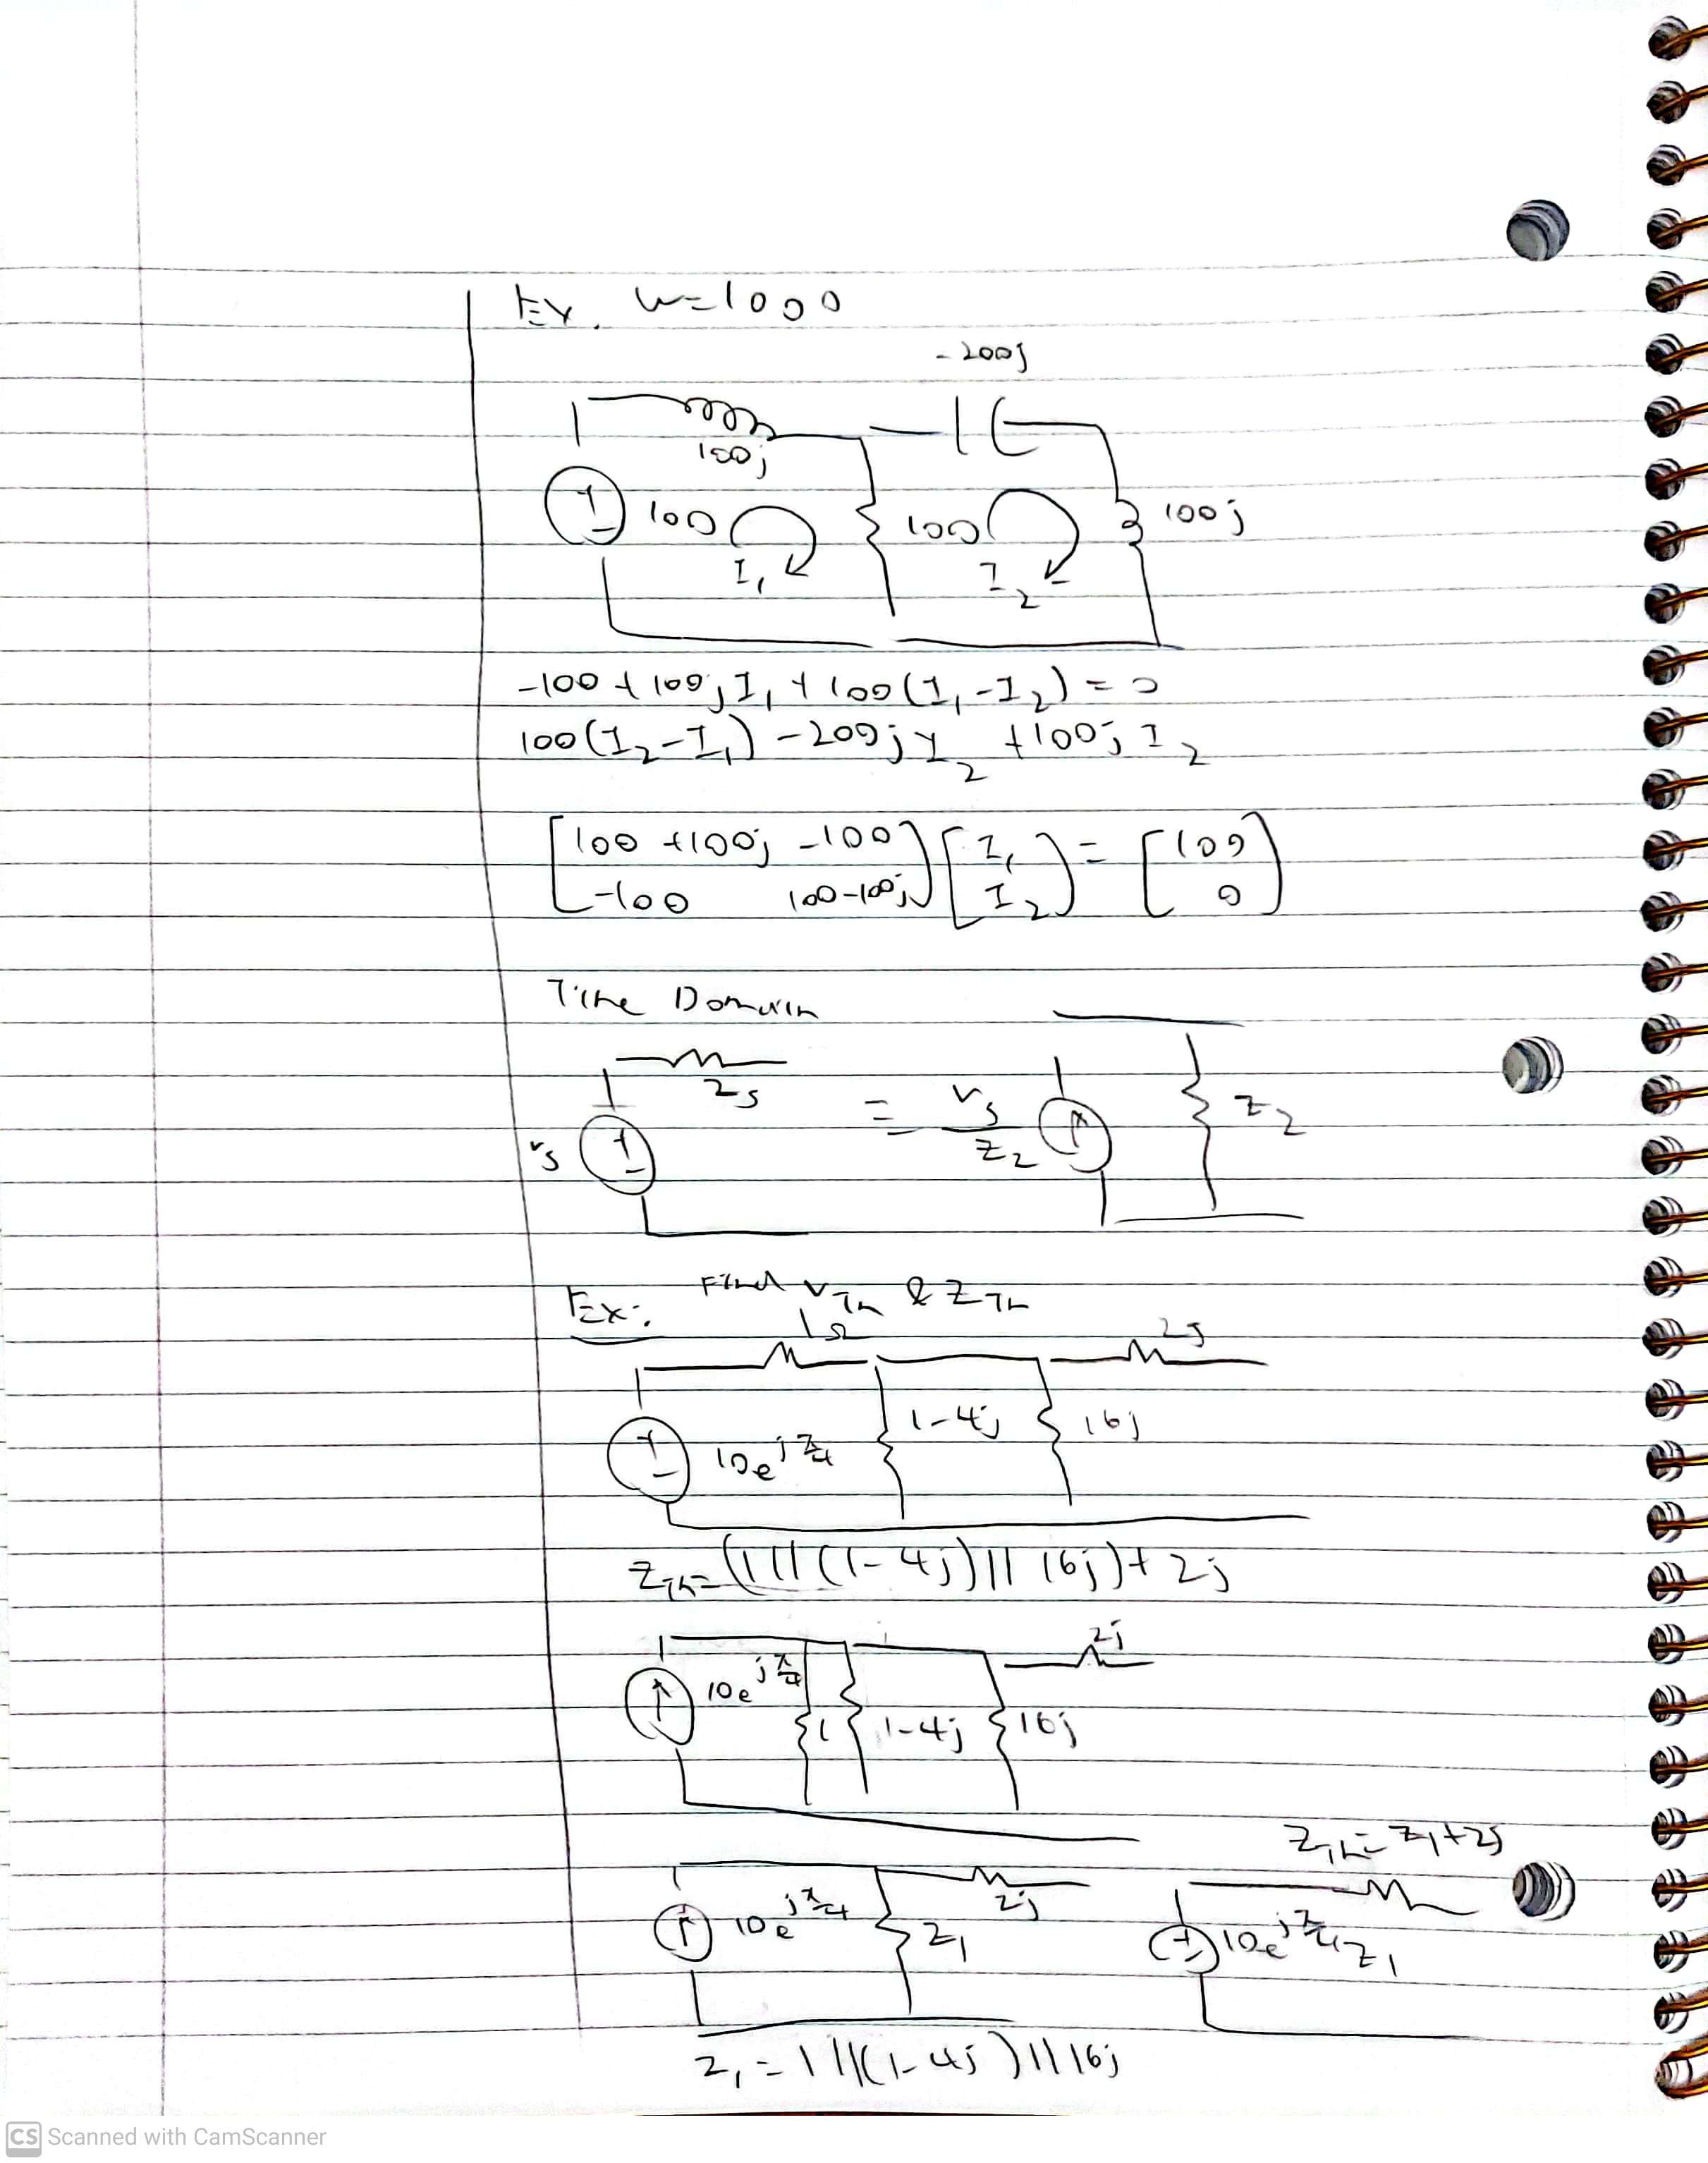 Ex. w=1000
-200j
100j
100 I₁ 100 I₂ 100j
-100 + 100j I₁ + 100(I₁-I₂) = 0
100(I₂-I₁) -200j I₂ +100j I₂
[100 +100j -100] [I₁] = [100]
[-100 100-100j] [I₂] [0]
Time Domain
Zs
vs = vs/Z₂ Z₂
Ex: Find VTh & ZTh
1Ω 2j
10e^jπ/4 1-4j 16j
ZTh=(1||(1-4j)||16j)+2j
2j
10e^jπ/4 1 1-4j 16j
ZTh=Z₁+2j
10e^jπ/4 Z₁ 2j 10e^jπ/4 Z₁
Z₁ = 1||(1-4j)||16j
CS Scanned with CamScanner